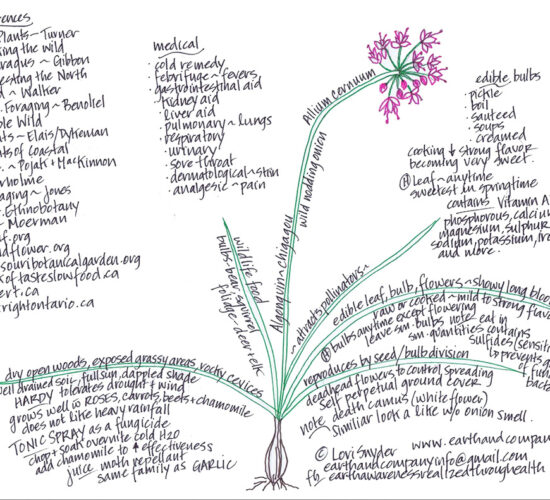 ences
Plants ~ Turner
king the wild
aragus ~ Gibbon
esting the North
d ~ Walker
. Foraging ~ Benoliel
ble Wild
nts ~ Elais/Dykeman
nts of Coastal
. ~ Pojak + MacKinnon
rholme
aging ~ Jones
. Ethnobotany
~ Moerman
f.org
dflower.org
souribotanicalgarden.org
k of tasteslowfood.ca
ert.ca
rightontario.ca
medical
· cold remedy
· febrifuge ~ fevers
· gastrointestinal aid
· kidney aid
· liver aid
· pulmonary ~ lungs
· respiratory
· urinary
· sore throat
· dermatological ~ skin
· analgesic ~ pain
Allium cernuum
wild nodding onion
Algonquin ~ chigagou
edible bulbs
· pickle
· boil
· sauteed
· soups
· creamed
cooking ↓ strong flavor
becoming very sweet.
H leaf ~ anytime
sweetest in springtime
contains Vitamin A
phosphorous, calciu
magnesium, sulphur
sodium, potassium, iro
and more.
wildlife food
bulbs bear, squirrel
foliage deer + elk
~ attracts pollinators ~
edible leaf, bulb, flowers ~ showy long bloo
raw or cooked ~ mild to strong flavo
H bulbs anytime except flowering
leave sm. bulbs note eat in
sm. quantities contains
sulfides (sensiti
↳ prevents g
of fun
bact
dry open woods, exposed grassy areas, rocky crevices
ell drained soil, full sun, dappled shade
HARDY tolerates drought + wind
grows well w ROSES, carrots, beets + chamomile
does not like heavy rainfall
TONIC SPRAY as a fungicide
chop + soak overnite cold H2O
add chamomile to ↑ effectiveness
juice moth repellant
same family as GARLIC
reproduces by seed / bulb division
deadhead flowers to control spreading
self perpetual ground cover
note death camus (white flower)
~ similiar look a like w/o onion smell.
© Lori Snyder www.earthandcompan
earthandcompanyinfo@gmail.com
fb earthawarenessrealizedthroughealth